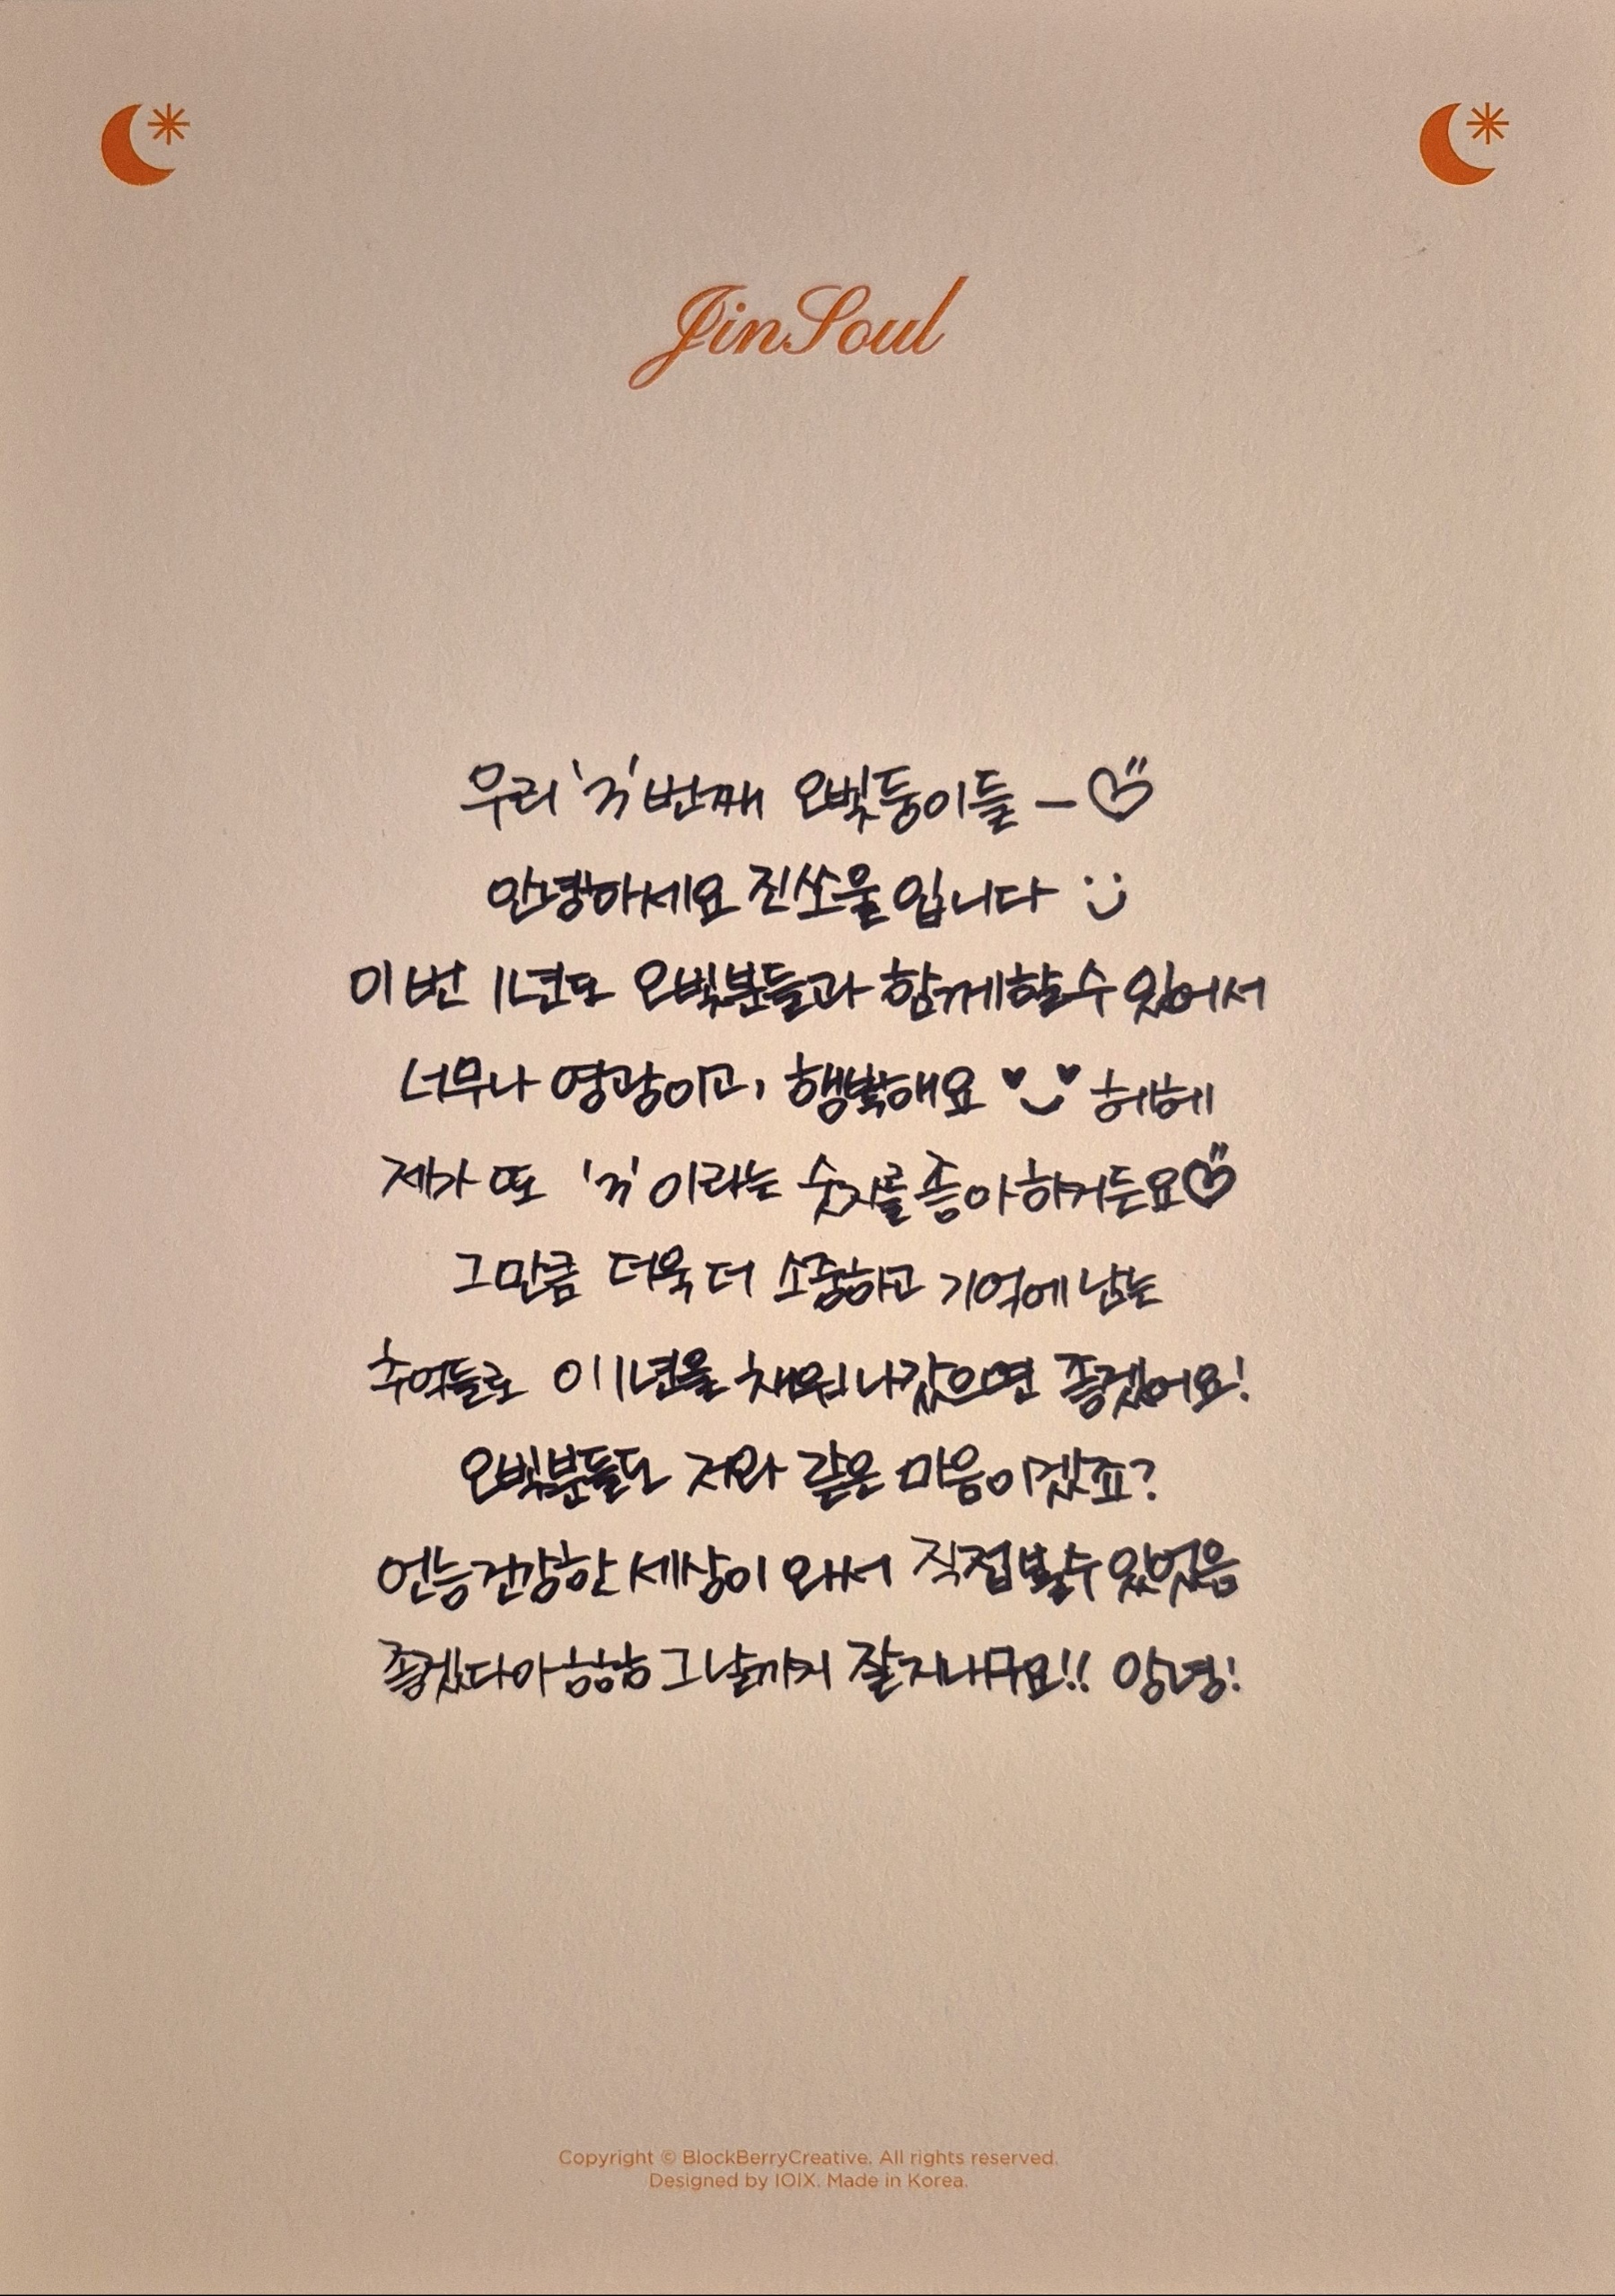 JinSoul
우리 '3' 번째 오빛둥이들 - ♡
안녕하세요 진쏘울입니다 :)
이번 1년도 오빛분들과 함께할 수 있어서
너무나 영광이고, 행복해요 ♥‿♥ 헤헤
제가 또 '3' 이라는 숫자를 좋아하거든요♡
그만큼 더욱 더 소중하고 기억에 남는
추억들로 이 1년을 채워나갔으면 좋겠어요!
오빛분들도 저와 같은 마음이겠죠?
언능 건강한 세상이 와서 직접 볼 수 있었음
좋겠다아 흐흐흐 그날까지 잘 지내구요!! 앙녕!
Copyright © BlockBerryCreative. All rights reserved.
Designed by IOIX. Made in Korea.